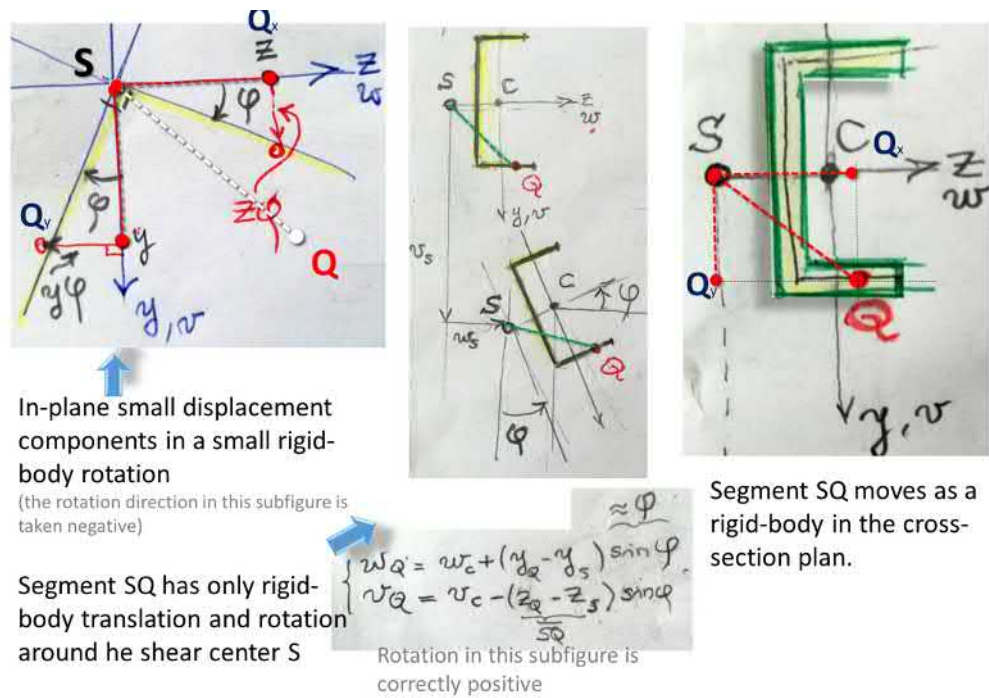 S
Qx
Z
Z
w
φ
φ
Qy
y
yφ
zφ
Q
y, v
S
C
z
w
Q
y, v
vs
S
C
φ
ws
Q
φ
S
C
Qx
Z
w
Qy
Q
y, v
In-plane small displacement
components in a small rigid-
body rotation
(the rotation direction in this subfigure is
taken negative)
Segment SQ has only rigid-
body translation and rotation
around he shear center S
≈ φ
wQ = wc + (yQ - ys) sinφ
vQ = vc - (zQ - zs) sinφ
SQ
Rotation in this subfigure is
correctly positive
Segment SQ moves as a
rigid-body in the cross-
section plan.